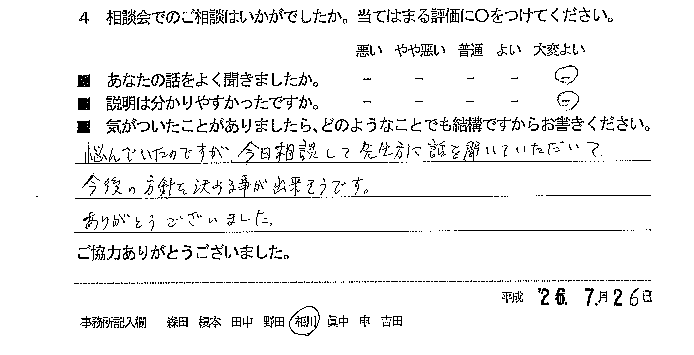 4 相談会でのご相談はいかがでしたか。当てはまる評価に○をつけてください。
悪い やや悪い 普通 よい 大変よい
■ あなたの話をよく聞きましたか。 － － － － －
■ 説明は分かりやすかったですか。 － － － － －
■ 気がついたことがありましたら、どのようなことでも結構ですからお書きください。
悩んでいたのですが、今日相談して先生方に話を聞いていただいて
今後の方針を決める事が出来そうです。
ありがとうございました。
ご協力ありがとうございました。
平成 '26. 7.月26日
事務所記入欄 森田 榎本 田中 野田 相川 眞中 申 吉田